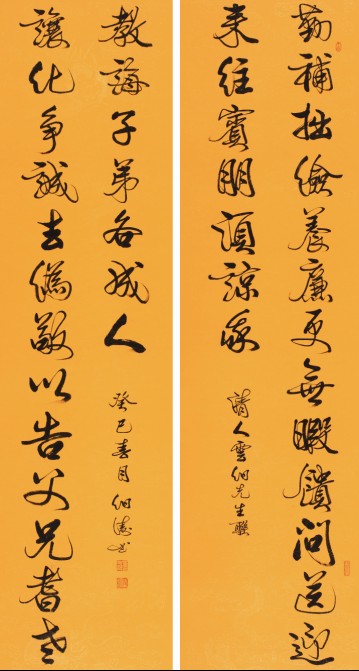 勤補拙儉養廉更無暇饋問送迎
来往賓朋須諒我
清人雲伯先生聯
讓化爭誠去偽敬以告父兄耆老
教誨子弟各成人
癸巳春月伯書